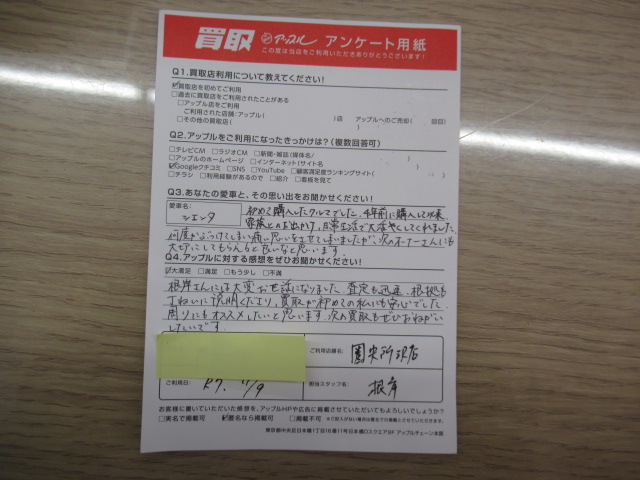 買取 アップル アンケート用紙
この度は当店をご利用いただきありがとうございます!
Q1.買取店利用について教えてください!
☑買取店を初めてご利用
□過去に買取店をご利用されたことがある
□アップル店をご利用
ご利用された店舗:アップル( )店 アップルへのご売却( 回目)
□その他の買取店( )
Q2.アップルをご利用になったきっかけは?(複数回答可)
□テレビCM □ラジオCM □新聞・雑誌(媒体名/ )
□アップルのホームページ □インターネット(サイト名 )
☑Googleクチコミ □SNS □YouTube □顧客満足度ランキングサイト( )
□チラシ □利用経験があるので □紹介 □看板を見て
Q3.あなたの愛車と、その思い出をお聞かせください!
愛車名:
シエンタ
初めて購入したクルマでした。4年前に購入して以来、
家族とのお出かけ、日常生活で大活やくしてくれました。
何度かぶつけてしまい痛い思いをさせてしまいましたが、次のオーナーさんにも
大切にしてもらえると良いなと思います。
Q4.アップルに対する感想をぜひお聞かせください!
☑大満足 □満足 □もう少し □不満
根岸さんには大変お世話になりました。査定も迅速、根拠も
ていねいに説明くださり、買取が初めての私にも安心でした。
周りにもオススメしたいと思います。次の買取もぜひおねがい
したいです。
ご利用店舗名:
圏央所沢店
ご利用日:
R7. 11/9
担当スタッフ名:
根岸
お客様に書いていただいた感想を、アップルHPや広告に掲載させていただいてもよろしいでしょうか?
□実名で掲載可 ☑匿名なら掲載可 □掲載不可
東京都中央区日本橋1丁目16番11号日本橋Dスクエア8F アップルチェーン本部